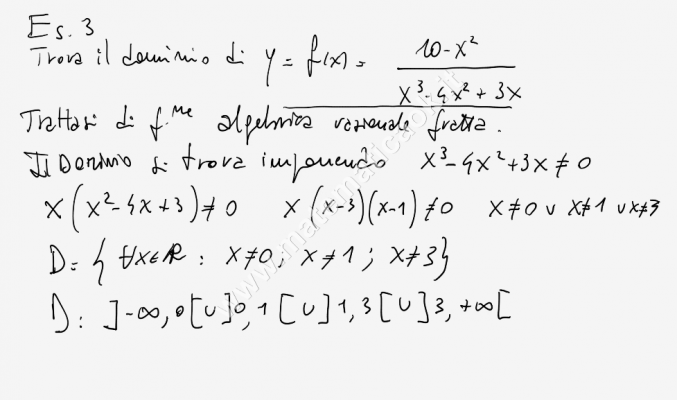 Es. 3
Trova il dominio di y = f(x) = (10-x²)/(x³-4x²+3x)
Trattasi di f.ne algebrica razionale fratta.
Il Dominio si trova imponendo x³-4x²+3x≠0
x(x²-4x+3)≠0 x(x-3)(x-1)≠0 x≠0 ∨ x≠1 ∨ x≠3
D={∀x∈R : x≠0; x≠1; x≠3}
D: ]-∞,0[∪]0,1[∪]1,3[∪]3,+∞[